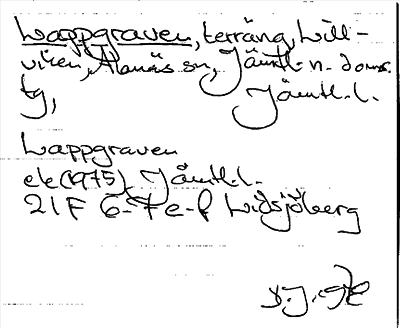 Lappgraven, terräng, Lill-
viken, Alanäs sn, Jämtl. n. doms.
tg, Jämtl. l.
Lappgraven
ek (1975) Jämtl. l.
21F 6-7 e-f Lidsjöberg